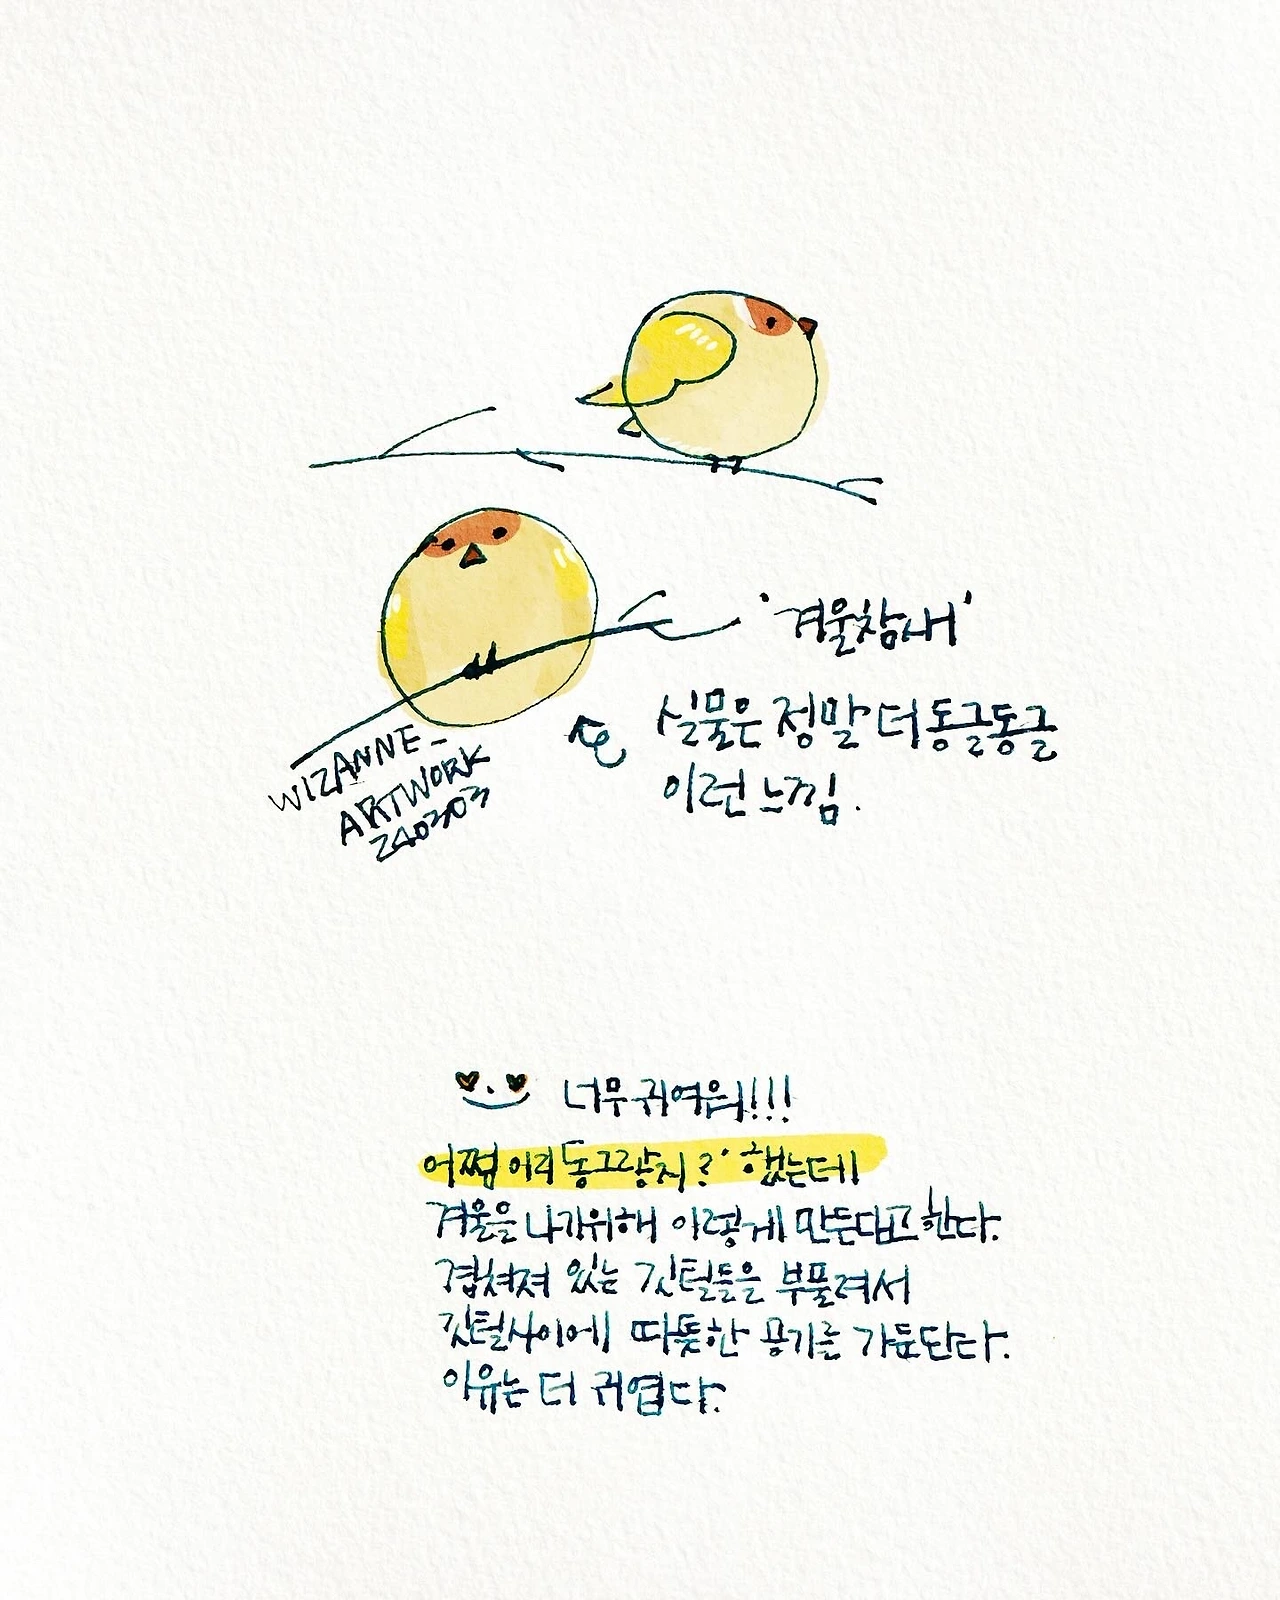 '겨울참새'
실물은 정말 더 동글동글
이런 느낌.
WIZANNE-
ARTWORK
240303
너무 귀여워!!!
어쩜 이리 동그랗지?' 했는데
겨울을 나기위해 이렇게 만든다고 한다.
겹쳐져 있는 깃털들을 부풀려서
깃털사이에 따뜻한 공기를 가둔단다.
이유는 더 귀엽다.